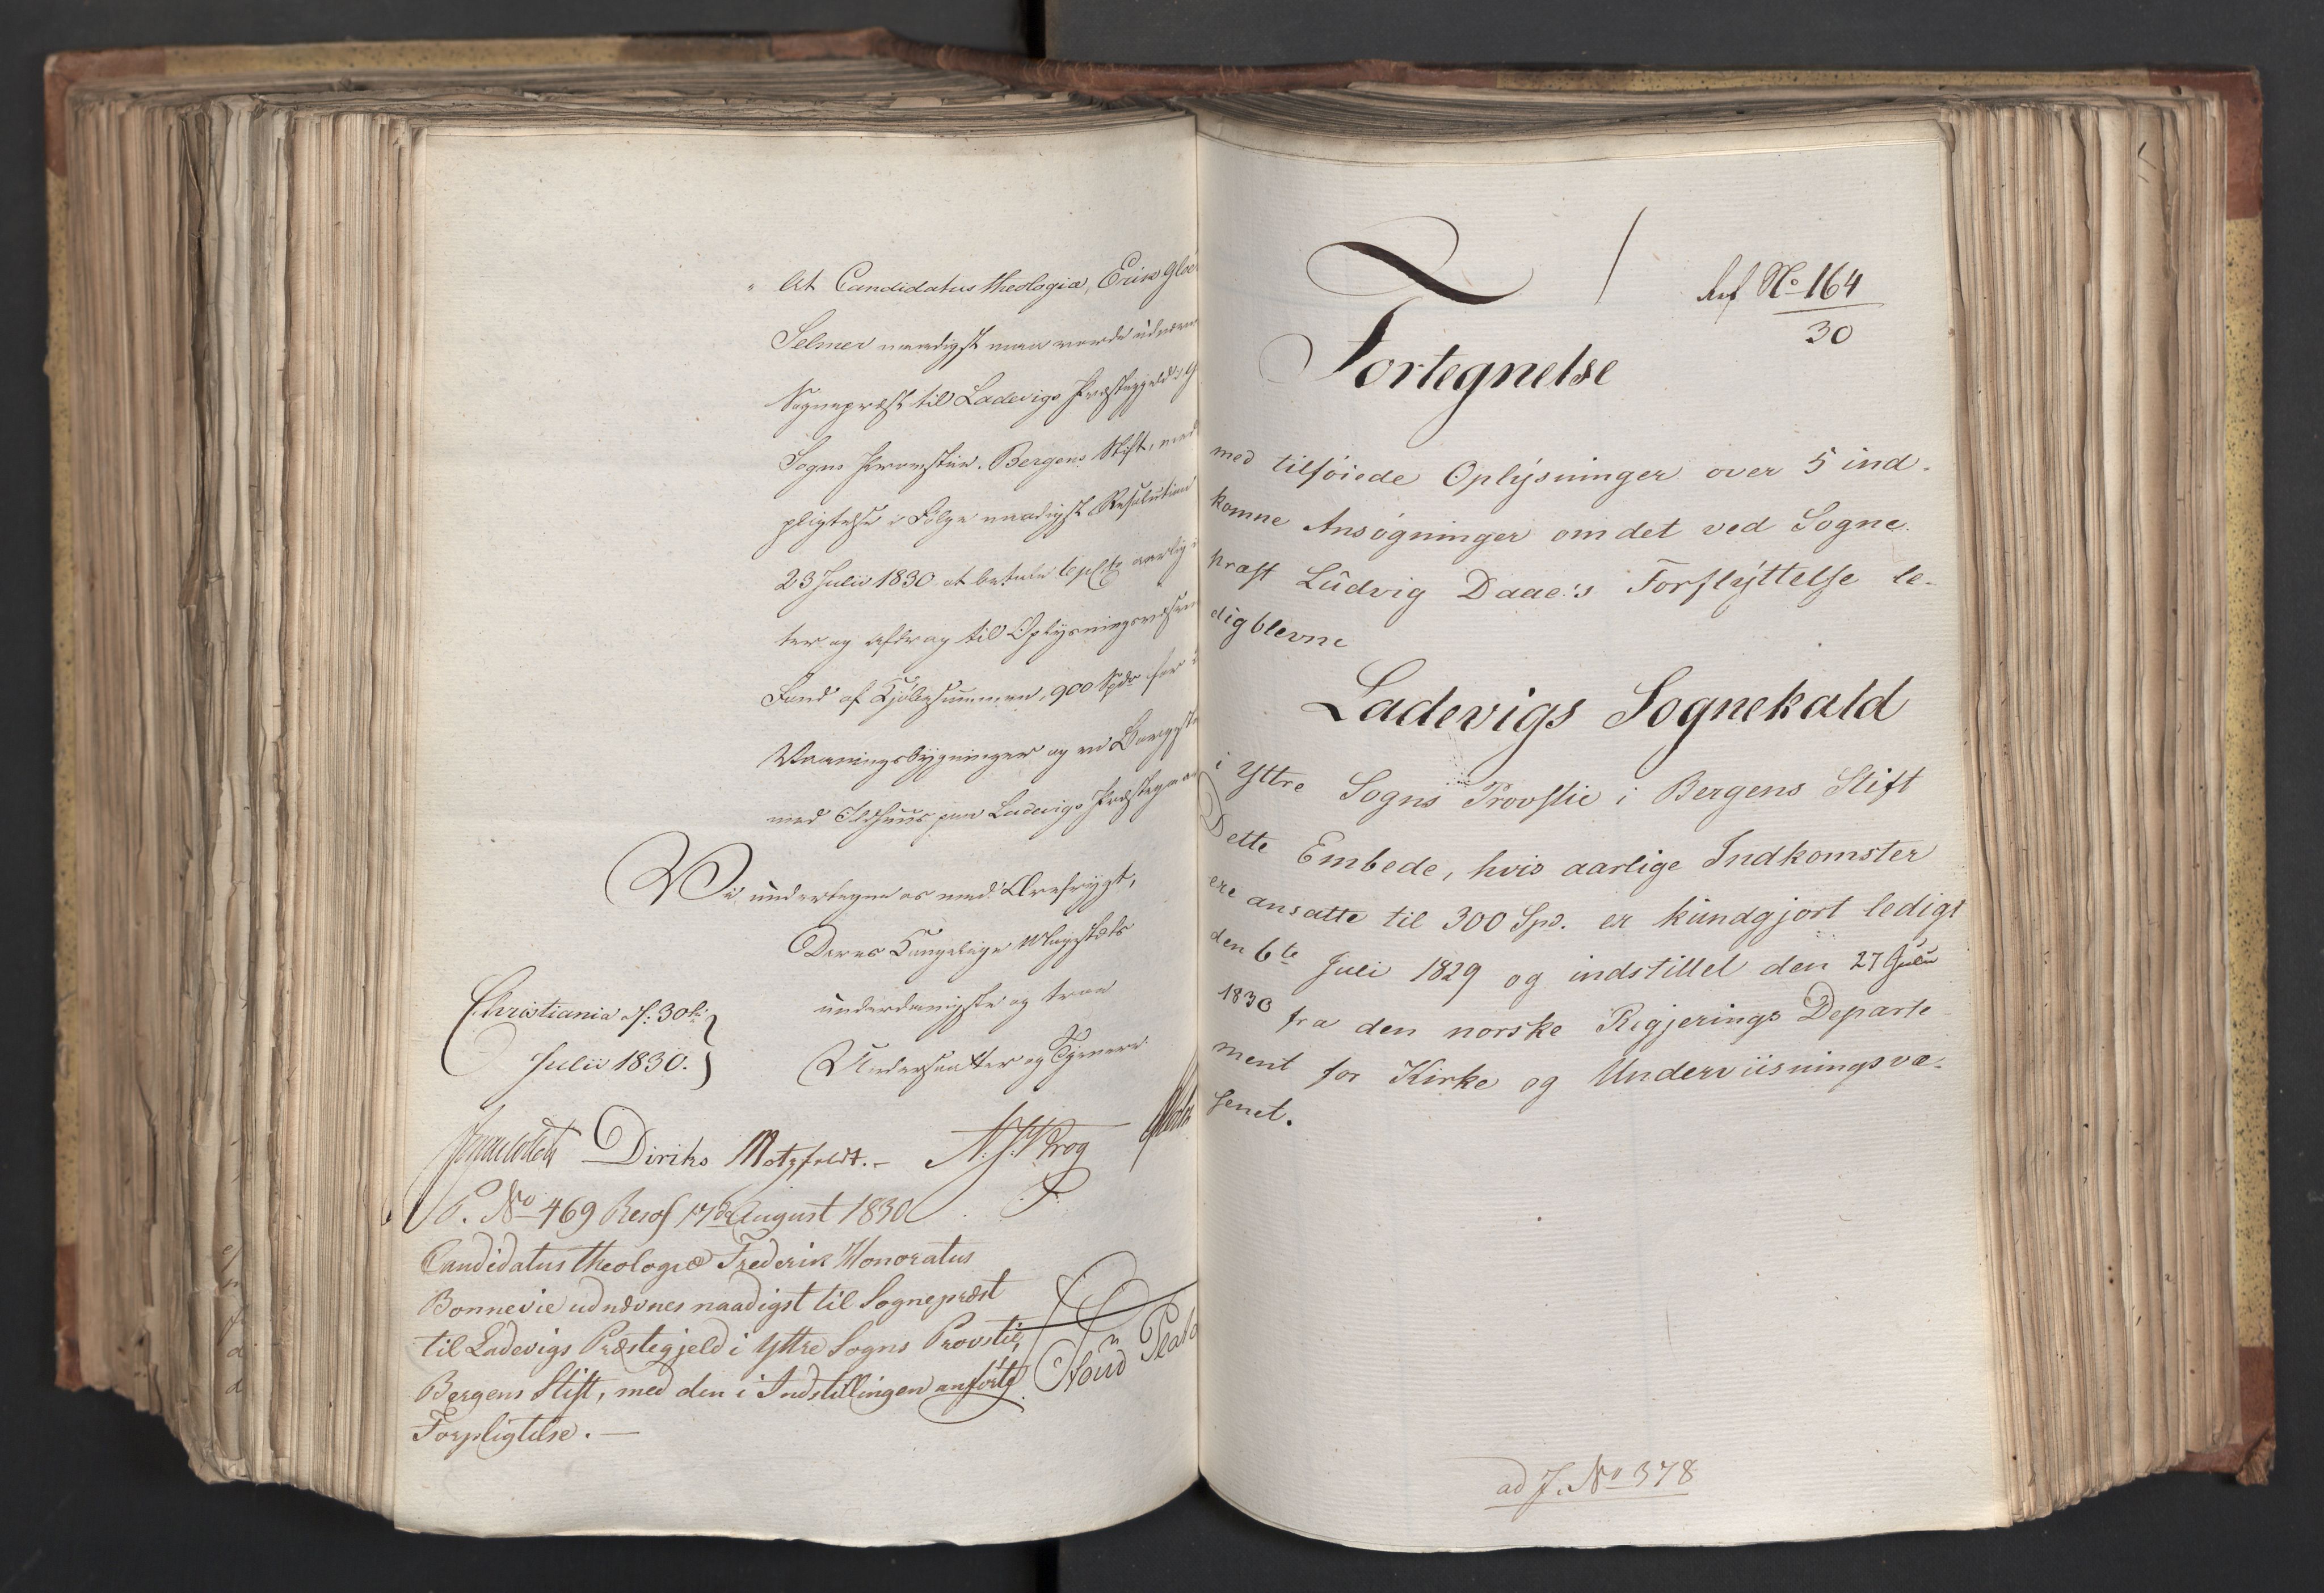 "At Candidatus theologiæ, Erik Glo
Selmer naadigst maa vorde udnævn
Sognepræst til Ladevigs Præstegjeld i Y
Sogns Provstie, Bergens Stift, med
pligtelse i Følge naadigst Resolution
23 Julii 1830 at betale aarlig
ter og Afdrag til Oplysningsvæsen
Fond af Kjøbesummen, 900 Spdr for
Vaaningsbygninger og en Borgst
med Ildhuus paa Ladevigs Præstegaa
Vi undertegne os med Ærefrygt,
Deres Kongelige Majestæts
underdanigste og troe
Undersaatter og Tjenere
Christiania d: 30te
Julii 1830.
Diriks Motzfeldt.- N. J. Krog
P. No 469 Resol 17de August 1830
Candidatus theologiæ Frederik Honoratus
Bonnevie udnævnes naadigst til Sognepræst
til Ladevigs Præstegjeld i Yttre Sogns Provstie,
Bergens Stift, med den i Indstillingen anførte
Forpligtelse. —
No 164
30
Fortegnelse
med tilføiede Oplysninger over 5 ind-
komne Ansøgninger om det ved Sogne
præst Ludvig Daae's Forflyttelse le-
digblevne
Ladevigs Sognekald
i Yttre Sogns Provstie i Bergens Stift
Dette Embede, hvis aarlige Indkomster
ere ansatte til 300 Spd. er kundgjort ledigt
den 6te Juli 1829 og indstillet den 27 Julii
1830 fra den norske Regjerings Departe-
ment for Kirke og Underviisningsvæ-
senet.
ad J. No 378